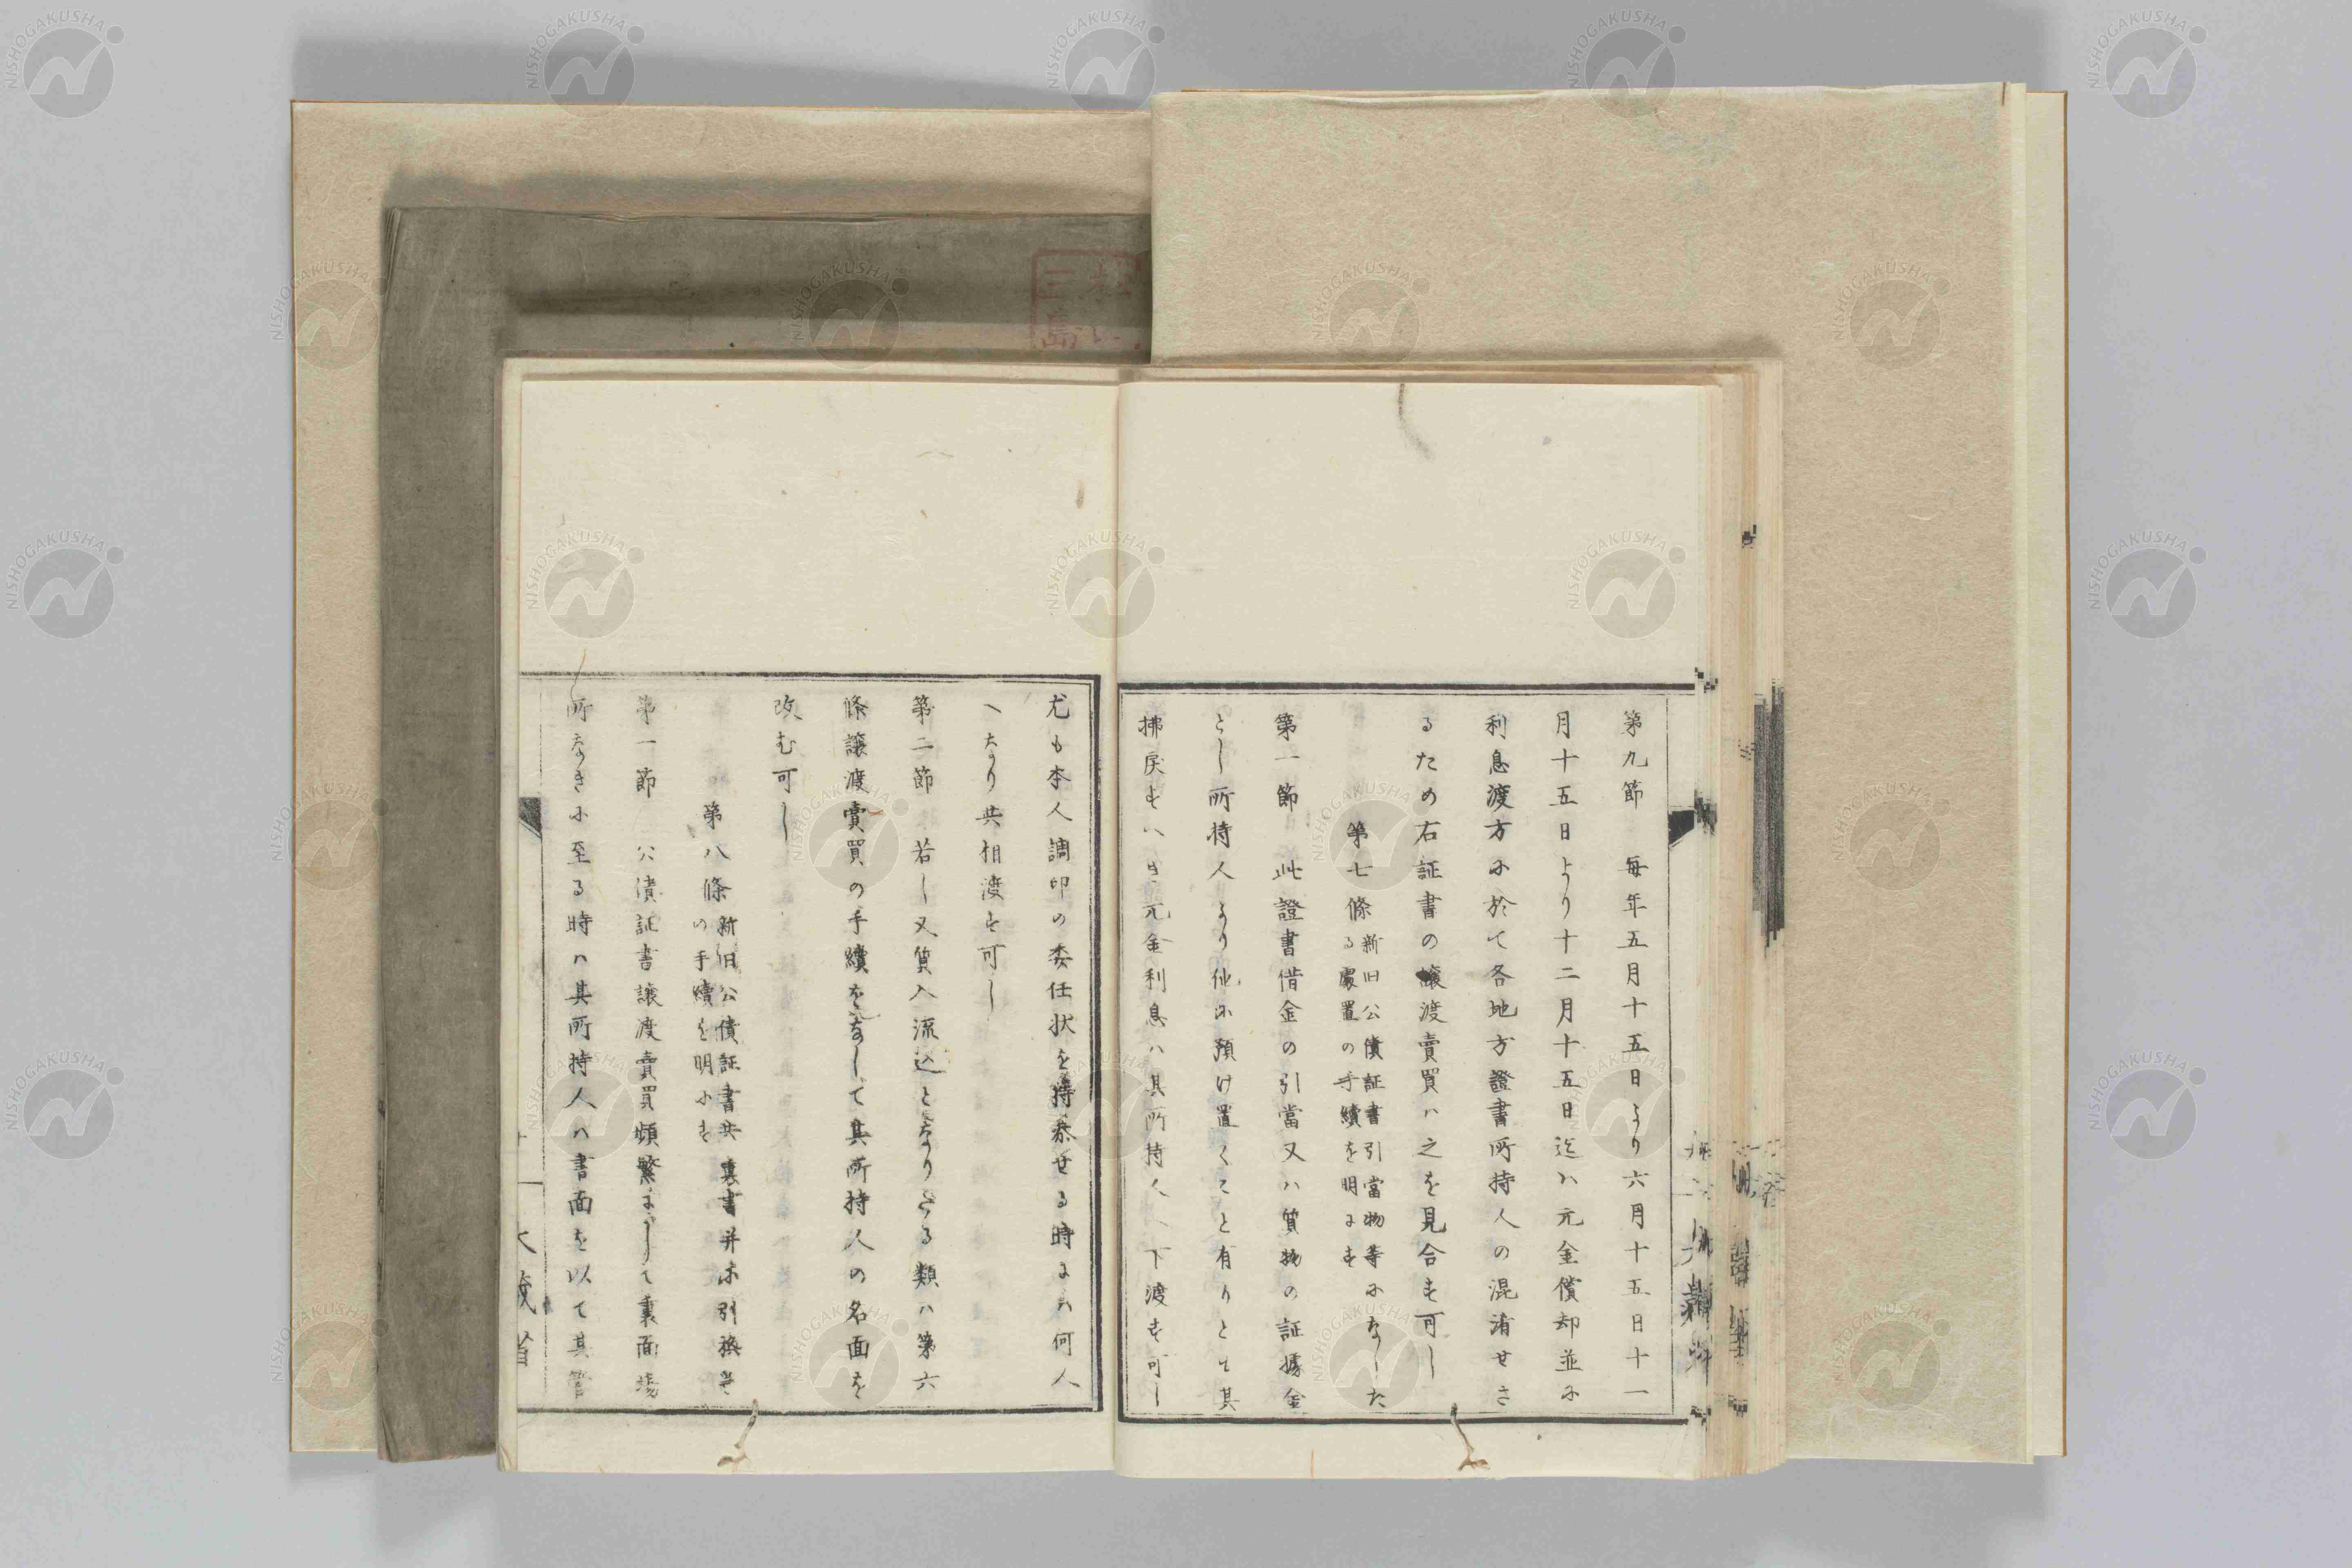 第九節　毎年五月十五日より六月十五日十一
月十五日より十二月十五日迄ハ元金償却並に
利息渡方に於て各地方證書所持人の混淆せさ
るため右証書の譲渡賣買ハ之を見合す可し
第七條
新旧公債証書引當物等になした
る處置の手續を明にす
第一節　此證書借金の引當又ハ質物の証據金
とし所持人より他に預け置くこと有りとも其
拂戻すへき元金利息ハ其所持人へ下渡す可し
尤も本人調印の委任状を持参せる時にハ何人
へなり共相渡す可し
第二節　若し又質入流込となりたる類ハ第六
條譲渡賣買の手續をなして其所持人の名面を
改む可し
第八條
新旧公債証書共裏書并に引換き
の手續を明にす
第一節　公債証書譲渡賣買頻繁にして裏面塲
所なきに至る時ハ其所持人ハ書面を以て其管
十一
大藏省
NISHOGAKUSHA